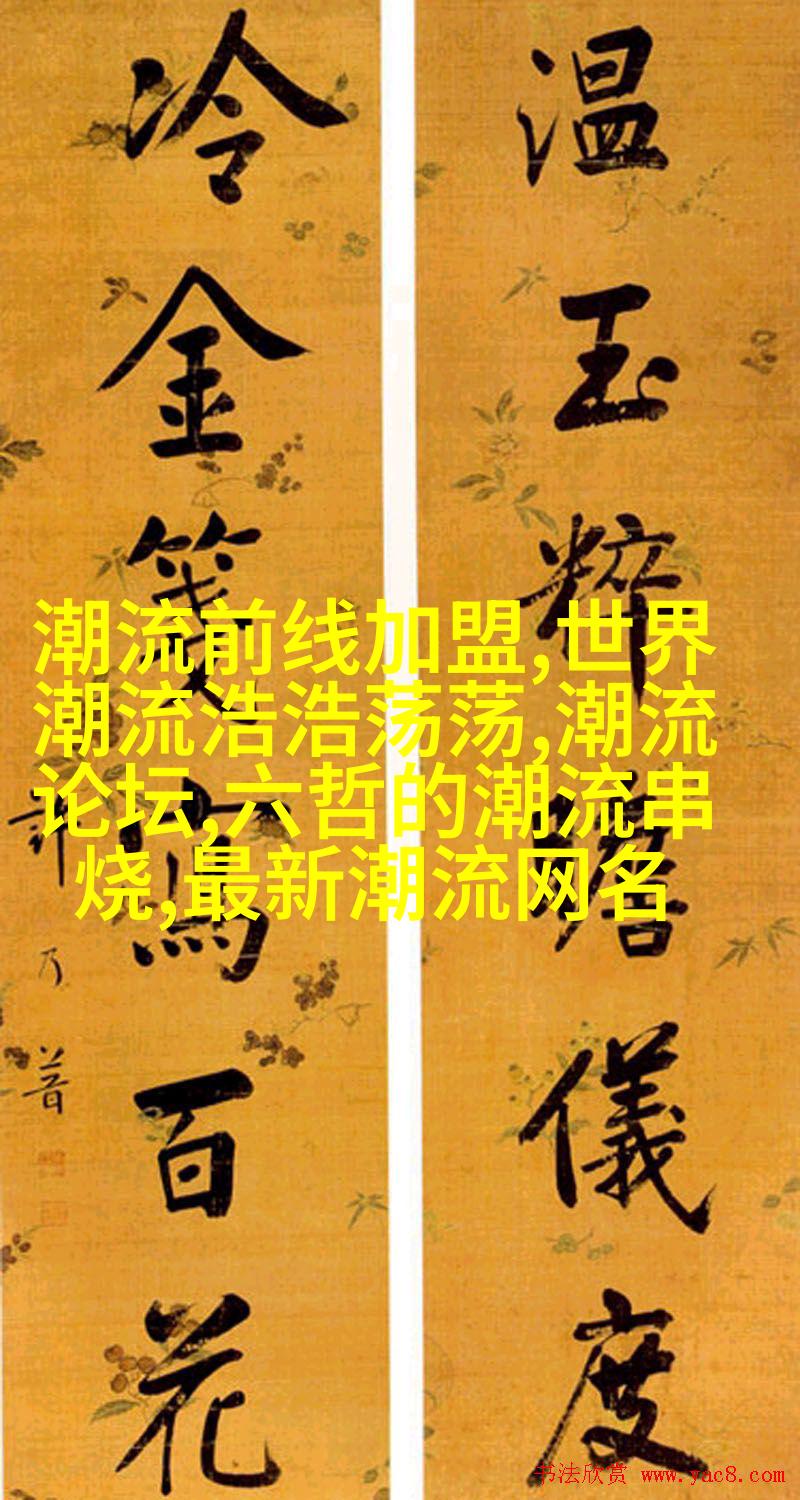 温玉粹瞻儀度
冷金箋寫百花
許乃普
潮流前线加盟,世界
潮流浩浩荡荡,潮流
论坛,六哲的潮流串
烧,最新潮流网名
书法欣赏 www.yac8.com